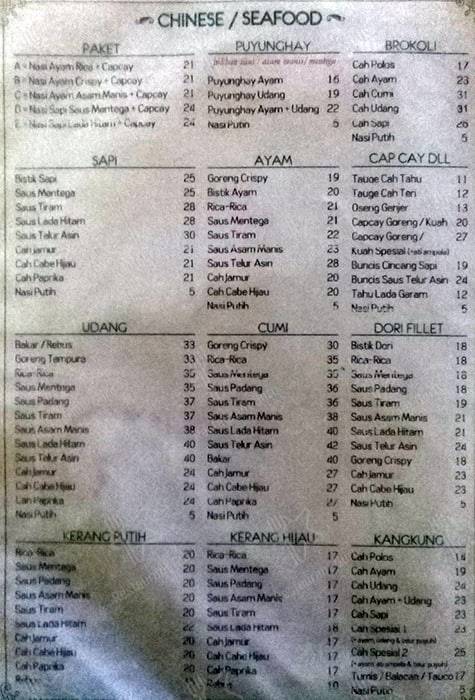 CHINESE / SEAFOOD
PAKET
A = Nasi Ayam Rica + Capcay 21
B = Nasi Ayam Crispy + Capcay 21
C = Nasi Ayam Asam Manis + Capcay 21
D = Nasi Sapi Saus Mentega + Capcay 24
E = Nasi Sapi Lada Hitam + Capcay 24
PUYUNGHAY
Puyunghay Ayam 16
Puyunghay Udang 19
Puyunghay Ayam + Udang 22
Nasi Putih 5
BROKOLI
Cah Polos 17
Cah Ayam 23
Cah Cumi 31
Cah Udang 31
Cah Sapi 26
Nasi Putih 5
SAPI
Bistik Sapi 25
Saus Mentega 25
Saus Tiram 28
Saus Lada Hitam 28
Saus Telur Asin 30
Cah Jamur 21
Cah Cabe Hijau 21
Cah Paprika 21
Nasi Putih 5
AYAM
Goreng Crispy 19
Bistik Ayam 20
Rica-Rica 21
Saus Mentega 21
Saus Tiram 22
Saus Asam Manis 23
Saus Telur Asin 28
Cah Jamur 20
Cah Cabe Hijau 20
Nasi Putih 5
CAP CAY DLL
Tauge Cah Tahu 11
Tauge Cah Teri 12
Oseng Genjer 13
Capcay Goreng / Kuah 20
Capcay Goreng / 27
Kuah Spesial (+ati ampela)
Buncis Cincang Sapi 19
Buncis Saus Telur Asin 24
Tahu Lada Garam 12
Nasi Putih 5
UDANG
Bakar / Rebus 33
Goreng Tempura 33
Rica-Rica 35
Saus Mentega 35
Saus Padang 37
Saus Tiram 37
Saus Asam Manis 38
Saus Lada Hitam 40
Saus Telur Asin 40
Cah Jamur 24
Cah Cabe Hijau 24
Cah Paprika 24
Nasi Putih 5
CUMI
Goreng Crispy 30
Rica-Rica 35
Saus Mentega 35
Saus Padang 36
Saus Tiram 36
Saus Asam Manis 38
Saus Lada Hitam 40
Saus Telur Asin 42
Bakar 40
Cah Jamur 27
Cah Cabe Hijau 27
Cah Paprika 27
Nasi Putih 5
DORI FILLET
Bistik Dori 18
Rica-Rica 18
Saus Mentega 18
Saus Padang 18
Saus Tiram 19
Saus Asam Manis 21
Saus Lada Hitam 21
Saus Telur Asin 24
Goreng Crispy 18
Cah Jamur 23
Cah Cabe Hijau 23
Nasi Putih 5
KERANG PUTIH
Rica-Rica 20
Saus Mentega 20
Saus Padang 20
Saus Asam Manis 20
Saus Tiram 20
Saus Lada Hitam 22
Cah Jamur 20
Cah Cabe Hijau 20
Cah Paprika 20
Rebus
KERANG HIJAU
Rica-Rica 17
Saus Mentega 17
Saus Padang 17
Saus Asam Manis 17
Saus Tiram 17
Saus Lada Hitam 18
Cah Jamur 17
Cah Cabe Hijau 17
Cah Paprika 17
Rebus
KANGKUNG
Cah Polos 14
Cah Ayam 19
Cah Udang 24
Cah Ayam + Udang 23
Cah Sapi 23
Cah Spesial 1 23
(+ ayam, udang & telur puyuh)
Cah Spesial 2 25
(+ ayam, ati ampela & telur puyuh)
Tumis / Balacan / Tauco 17
Nasi Putih